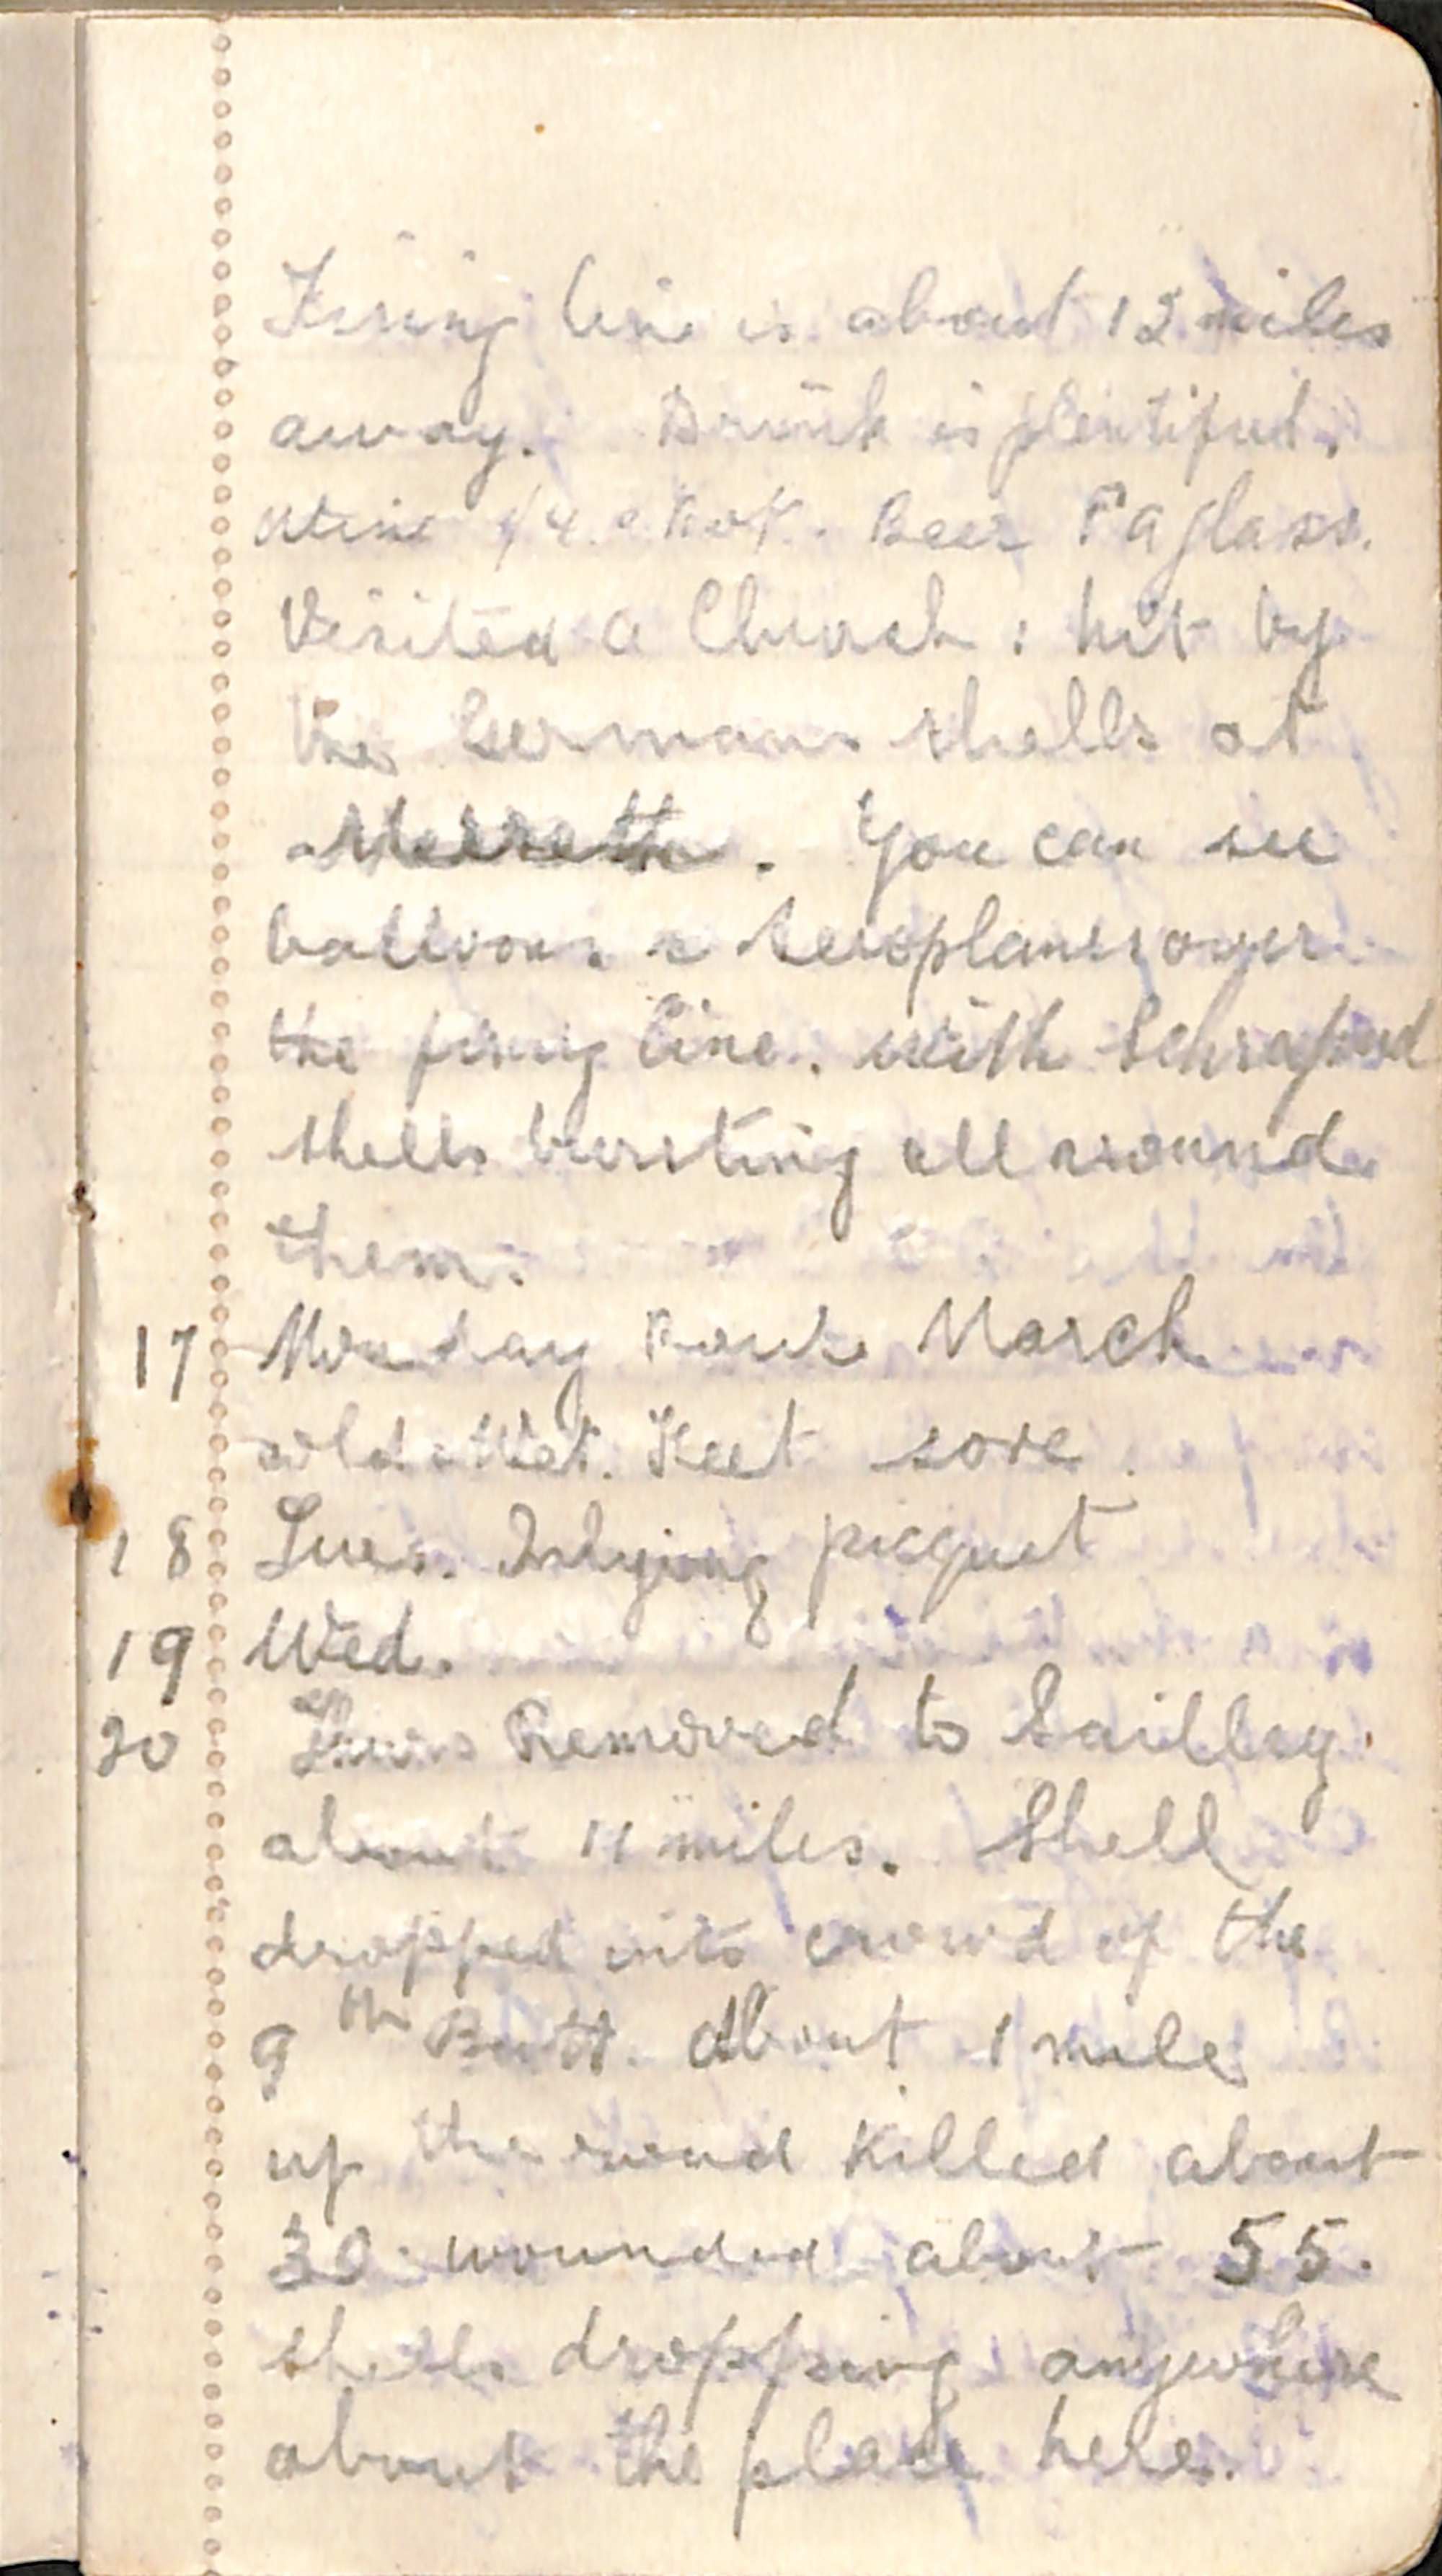 Firing line is about 12 miles
away. Drink is plentiful.
Wine Beer a glass.
Visited a Church: hit by
the Germans shells at
You can see
balloons & Aeroplanes over
the firing line. with Schrapnel
shells bursting all around
them.
17 Monday Route March
cold & Wet. Feet sore.
18 Tues. Inlying picquet
19 Wed.
20 Thurs Removed to Sailley.
about 11 miles. Shell
dropped into crowd of the
9th Batt. about 1 mile
up the road Killed about
30 wounded about 55.
shells dropping anywhere
about the place here.